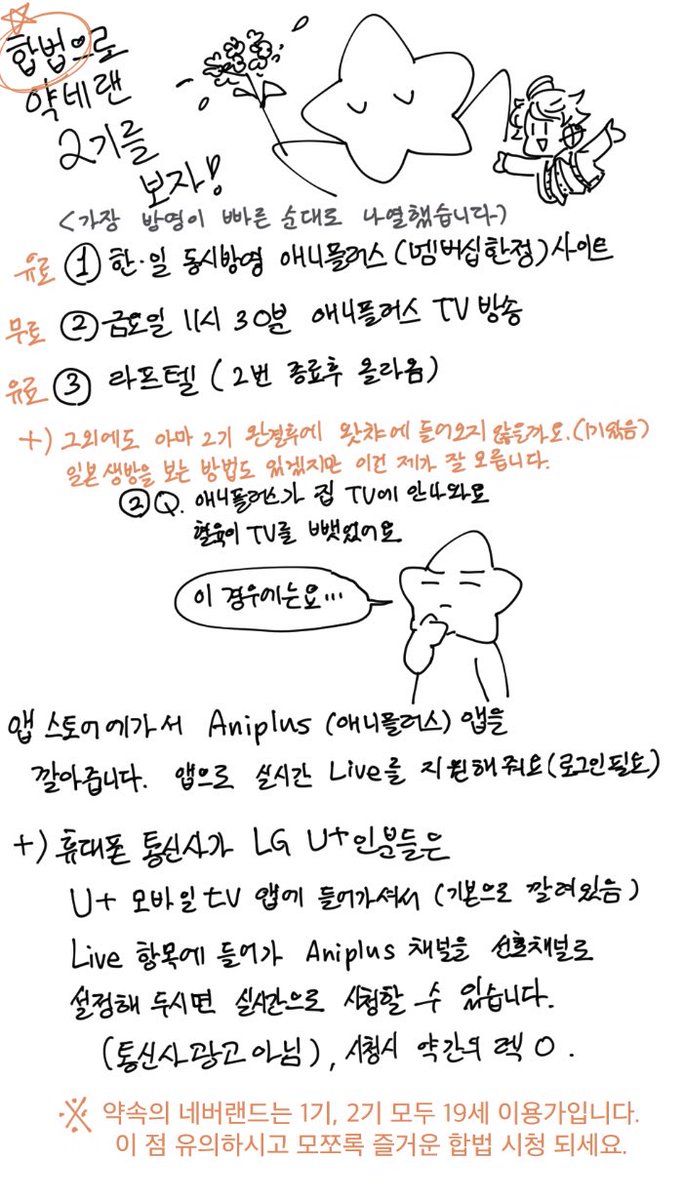 합법으로
약네랜
2기를
보자!
<가장 방영이 빠른 순대로 나열했습니다>
유료 ① 한·일 동시방영 애니플러스(멤버십한정)사이트
무료 ② 금요일 11시 30분 애니플러스 TV 방송
유료 ③ 라프텔 (2번 종료후 올라옴)
+) 그외에도 아마 2기 완결후에 왓챠에 들어오지 않을까요.(1기있음)
일본생방을 보는 방법도 있겠지만 이건 제가 잘 모릅니다.
② Q. 애니플러스가 집 TV에 안나와요
혈육이 TV를 뺏었어요
이 경우에는요...
앱 스토어에가서 Aniplus (애니플러스) 앱을
깔아줍니다. 앱으로 실시간 Live를 지원해줘요(로그인필요)
+) 휴대폰 통신사가 LG U+인분들은
U+ 모바일tv 앱에 들어가셔서 (기본으로 깔려있음)
Live 항목에 들어가 Aniplus 채널을 선호채널로
설정해 두시면 실시간으로 시청할 수 있습니다.
(통신사광고아님), 시청시 약간의 렉 O.
※ 약속의 네버랜드는 1기, 2기 모두 19세 이용가입니다.
이 점 유의하시고 모쪼록 즐거운 합법 시청 되세요.